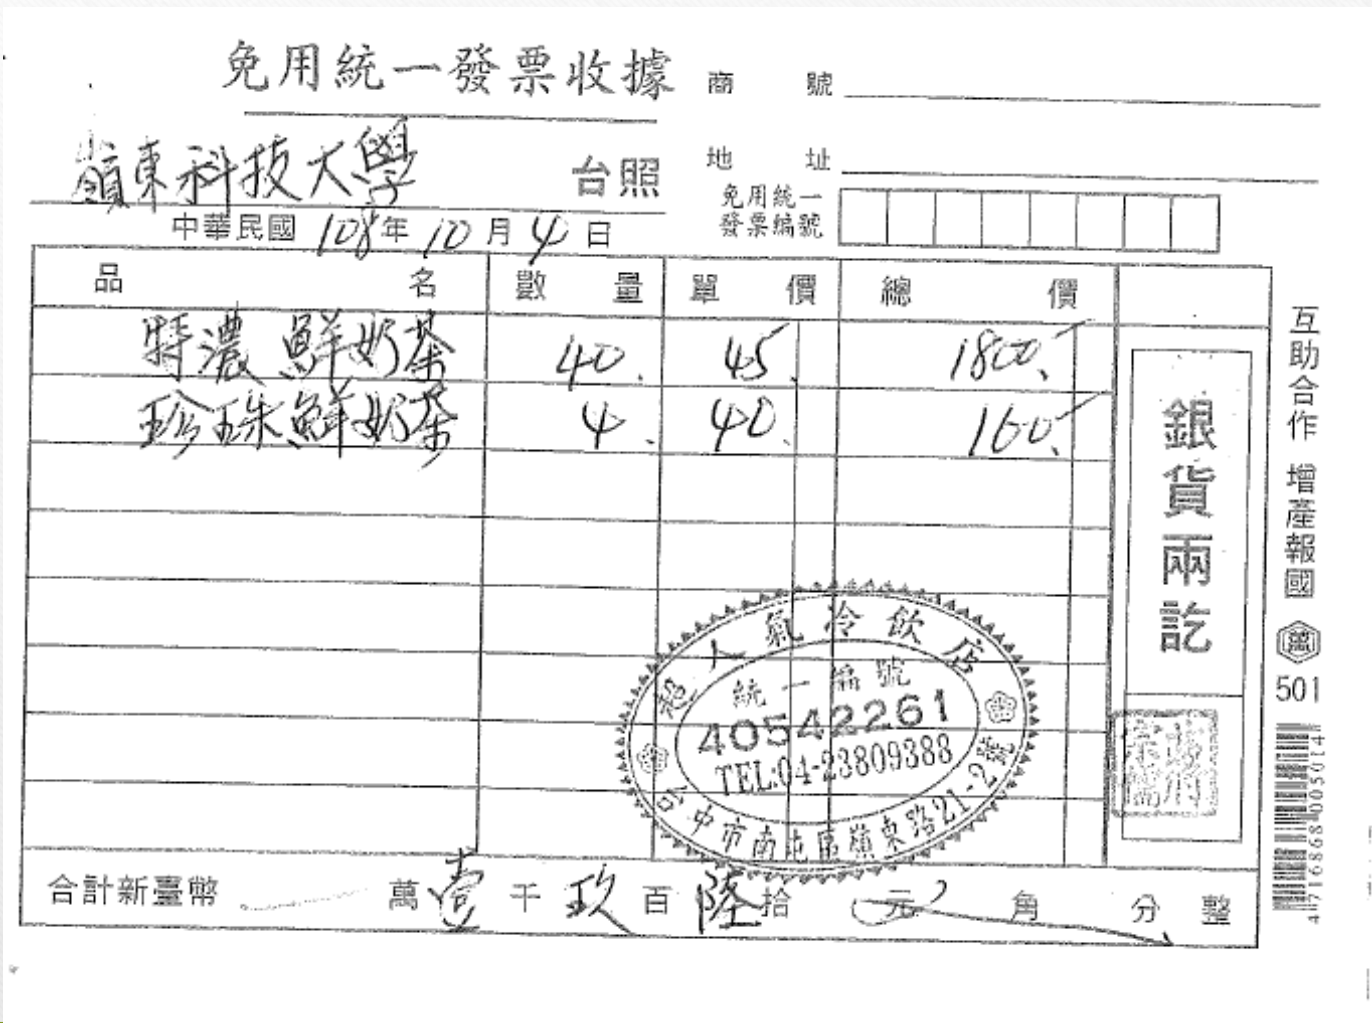 免用統一發票收據
商號
嶺東科技大學 台照
地址
免用統一發票編號
中華民國 108 年 10 月 4 日
品名 數量 單價 總價
特濃鮮奶茶 40. 45. 1800.
珍珠鮮奶茶 4. 40. 160.
銀貨兩訖
超人氣冷飲店
統一編號
40542261
TEL:04-23809388
台中市南屯區嶺東路21-2號
合計新臺幣 萬 壹 千 玖 百 陸 拾 元 角 分 整
互助合作 增產報國
萬
501
4 716868 005014